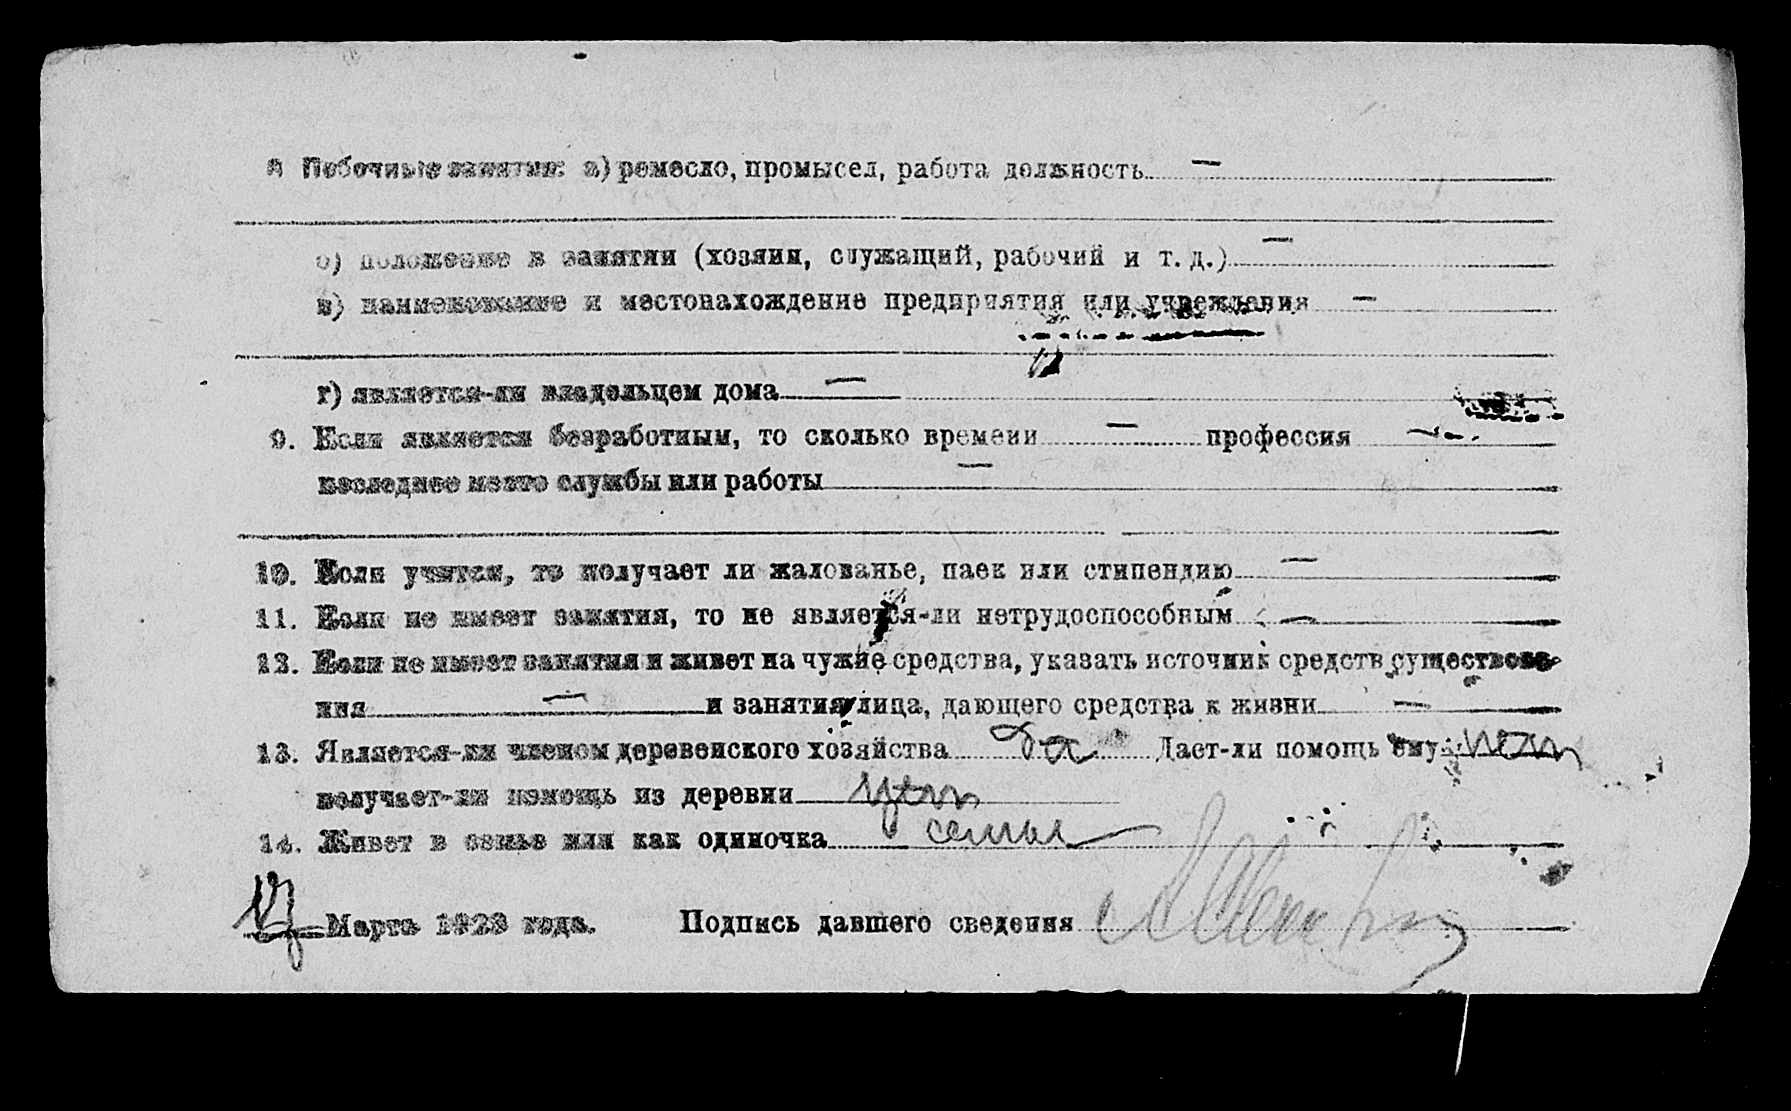 8 Побочные занятия: а) ремесло, промысел, работа должность —
б) положение в занятии (хозяин, служащий, рабочий и т. д.) —
в) наименование и местонахождение предприятия или учреждения —
г) является-ли владельцем дома —
9. Если является безработным, то сколько времени — профессия —
последнее место службы или работы —
10. Если учится, то получает ли жалованье, паек или стипендию —
11. Если не имеет занятия, то не является-ли нетрудоспособным —
12. Если не имеет занятия и живет на чужие средства, указать источник средств существова-
ния — и занятия лица, дающего средства к жизни —
13. Является-ли членом деревенского хозяйства да Дает-ли помощь ему нет
получает-ли помощь из деревни нет
14. Живет в семье или как одиночка семья
Марта 1923 года. Подпись давшего сведения